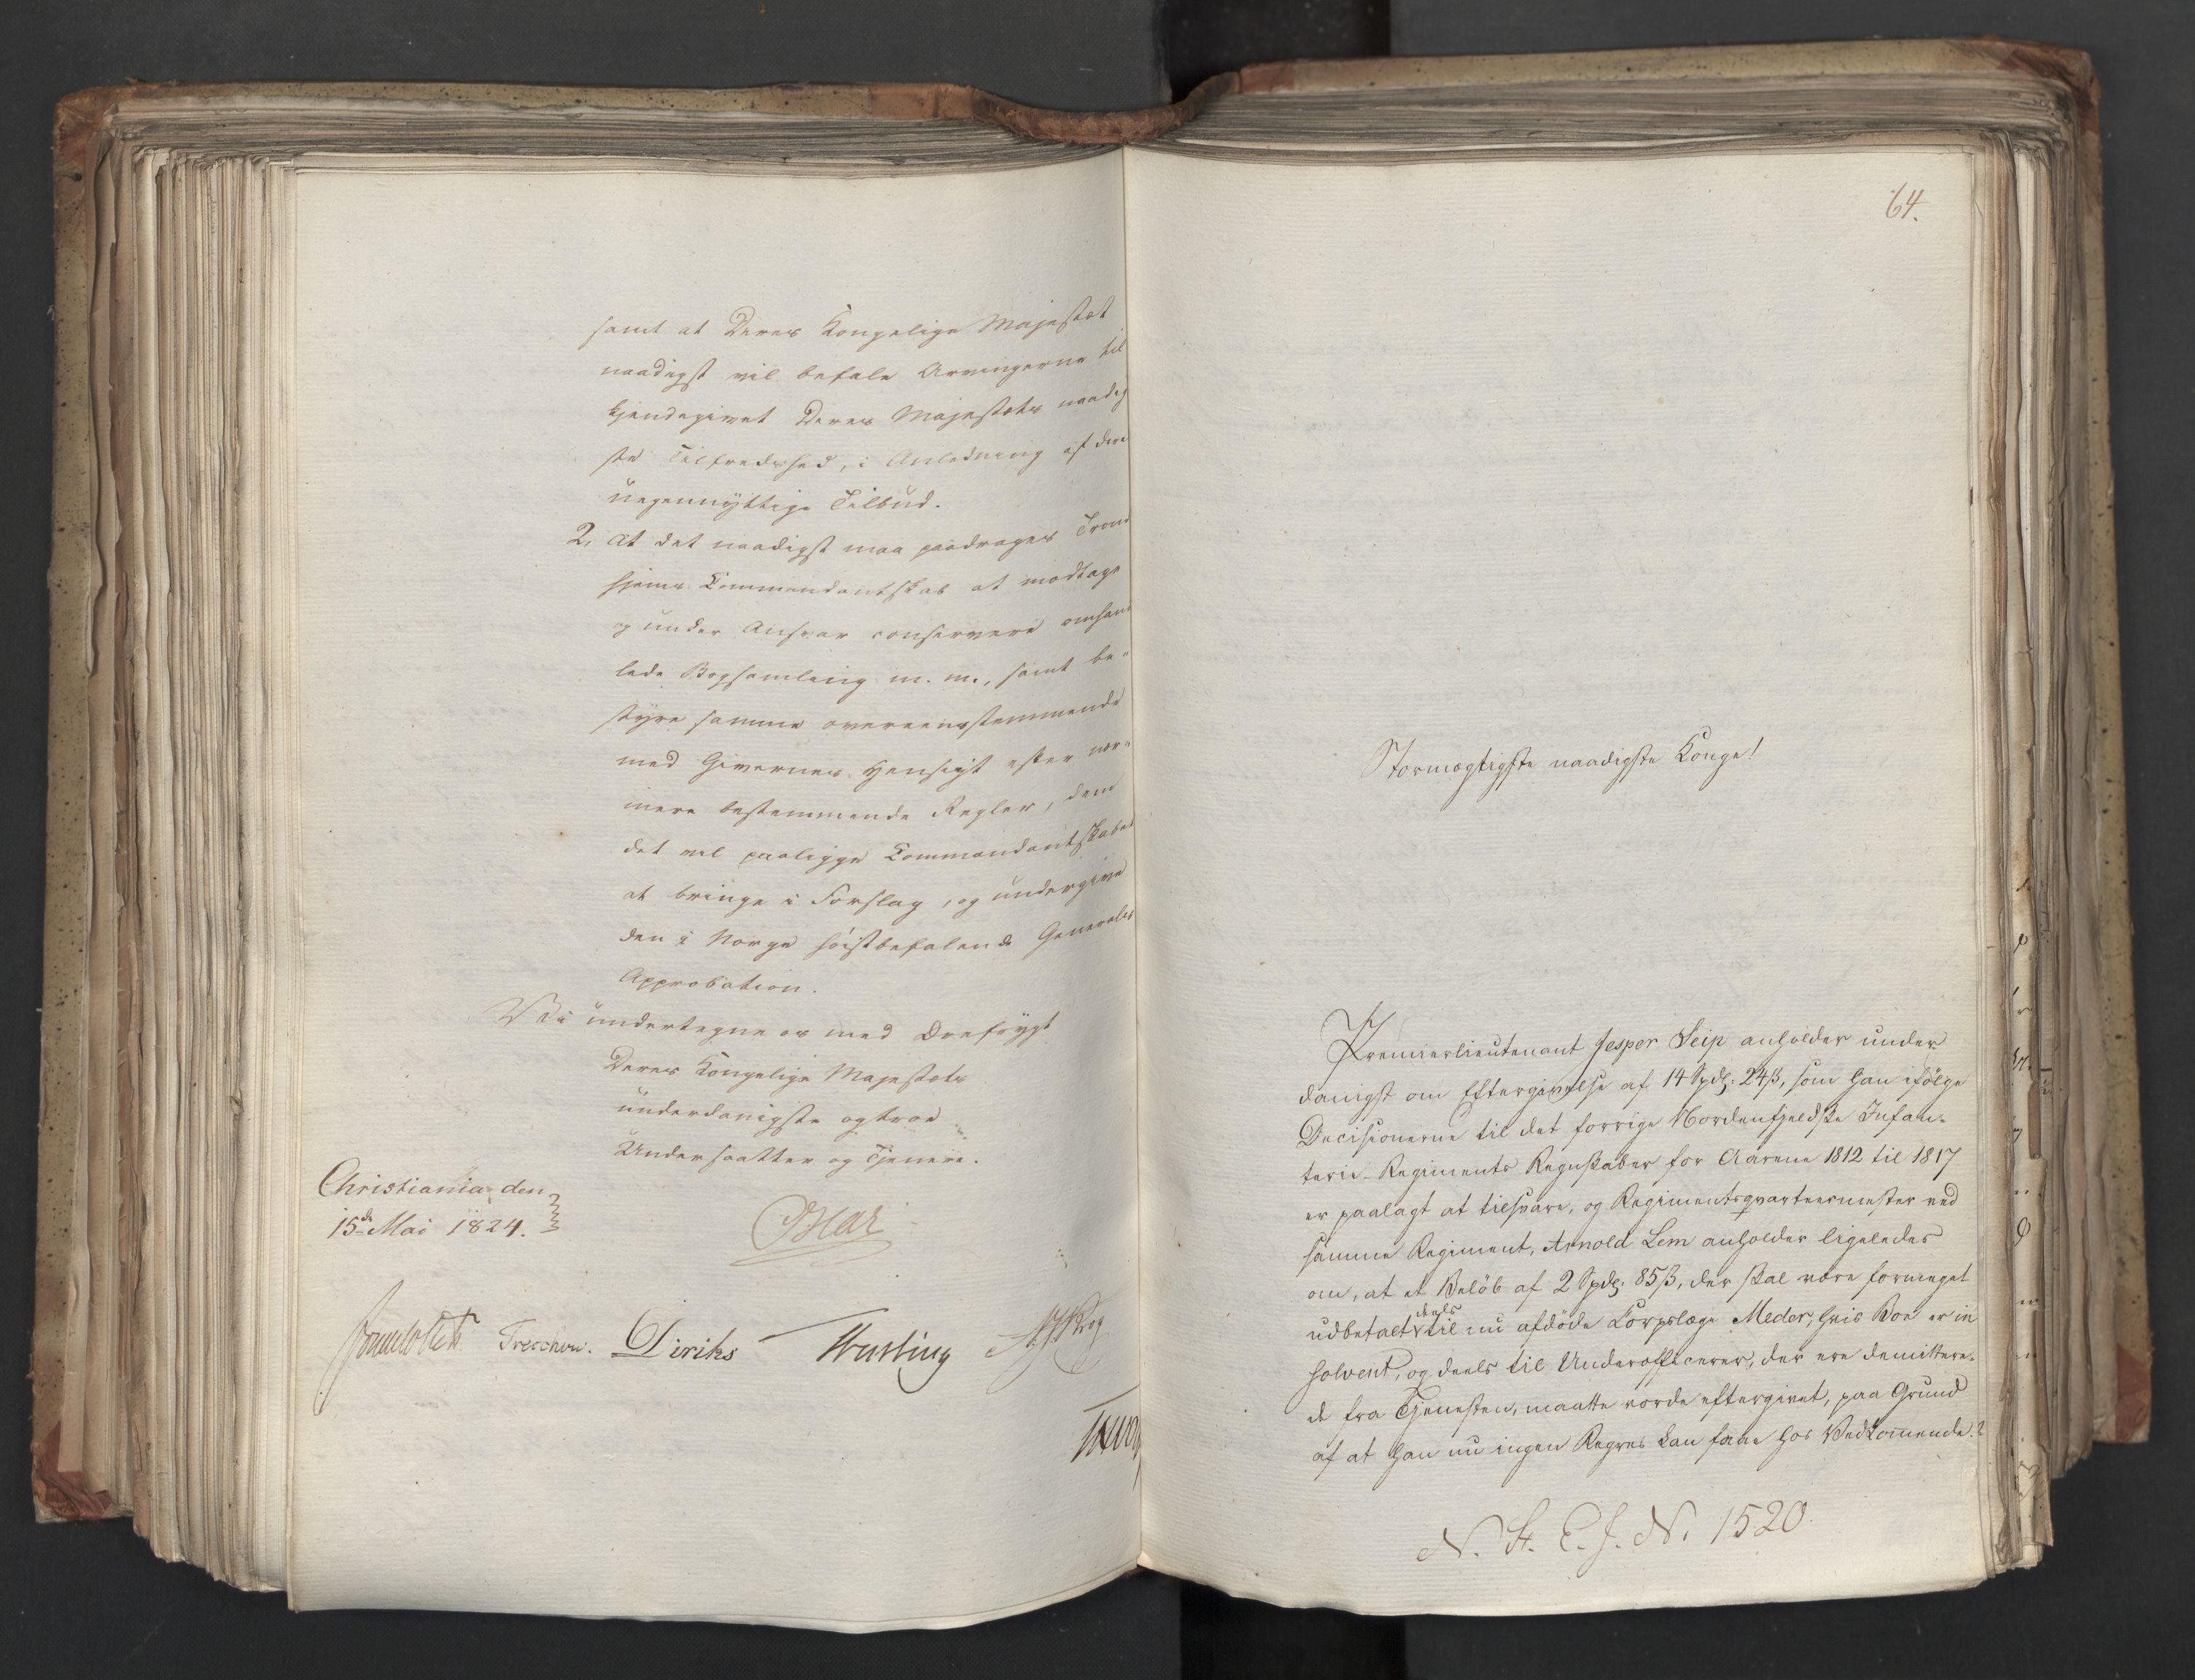 samt at Deres Kongelige Majestæt
naadigst vil befale Arvingerne til
kjendegivet Deres Majestæts naadig
ste Tilfredshed, i Anledning af dere
uegennyttige Tilbud.
2, At det naadigst maa paadrages Trond
hjems Commendantskab at modtage
og under Ansvar conservere omhand
lede Bogsamling m. m., samt be-
styre samme overeensstemmende
med Givernes Hensigt efter nær-
mere bestemmende Regler, dem
det vil paaligge Commandantskabet
at bringe i Forslag, og undergive
den i Norge høistbefalende Generals
Approbation.
Vi undertegne os med Ærefrygt
Deres Kongelige Majestæts
underdanigste og troe
Undersaatter og Tjenere.
Christiania den
15de Mai 1824.
Oscar
Sommerhielm Treschow. Diriks Fasting A. J. Krog
64.
Stormægtigste naadigste Konge!
Premierlieutenant Jesper Seip anholder under-
danigst om Eftergivelse af 14 Spdl: 24 ß, som han ifølge
Decisionerne til det forrige Nordenfjeldske Infan-
terie-Regiments Regnskaber for Aarene 1812 til 1817
er paalagt at tilsvare, og Regimentsqvarteermester ved
samme Regiment, Arnold Lem anholder ligeledes
om, at et Beløb af 2 Spdl: 85 ß, der skal være formeget
udbetalt deels til nu afdøde Corpslæge Meder, hvis Boe er in
solvent, og deels til Underofficerer, der ere demittere-
de fra Tjenesten, maatte vorde eftergivet, paa Grund
af at han nu ingen Regres kan faae hos Vedkommende.
N. St. E. J. N. 1520